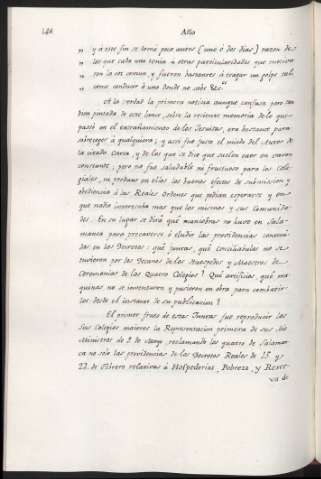 Año
„ y á este fin se tornó poco antes (uno ó dos dias) razon de
„ los que cada uno tenia ó otras particularidades que
„ con la voz comun, y fueron bastantes á tragar un golpe tal,
„ como conducir á uno donde no sabe &c.ª
A la verdad la primera noticia aunque confusa pero con
pintada de este lance, sobre la reciente memoria de lo que
pasó en el extrañamiento de los Jesuitas, era bastante para
sobrecoger á qualquiera; y assi fue justo el miedo del Autor de
la citada Carta, y de los que se dice que suelen caer en varon
constante; pero no fue saludable ni fructuoso para los Cole-
giales, ni produxo en ellos los buenos efectos de submission y
obediencia á las Reales Ordenes que podian esperarse, y en
que nadie interesaba mas que los mismos y sus Comunida-
des. En su lugar se dirá qué maniobras se hizo en Sala-
manca para precaverse ó eludir las providencias conteni-
das en los Decretos: qué Juntas, qué Conciliabulos no se
tuvieron por los Decanos de las Huespedes y Maestros de
Ceremonias de los Quatro Colegios? Qué artificios, qué ma-
quinas no se inventaron y pusieron en obra para combatir-
los desde el instante de su publicacion?
El primer fruto de estas Juntas fue reproducir los
Seis Colegios mayores la Representacion primera de sus
Ministros de 2 de Mayo, reclamando los quatro de Salaman-
ca no solo las providencias de los Decretos Reales de 15 y
22 de Febrero relativas á Hospederias, Pobreza, y